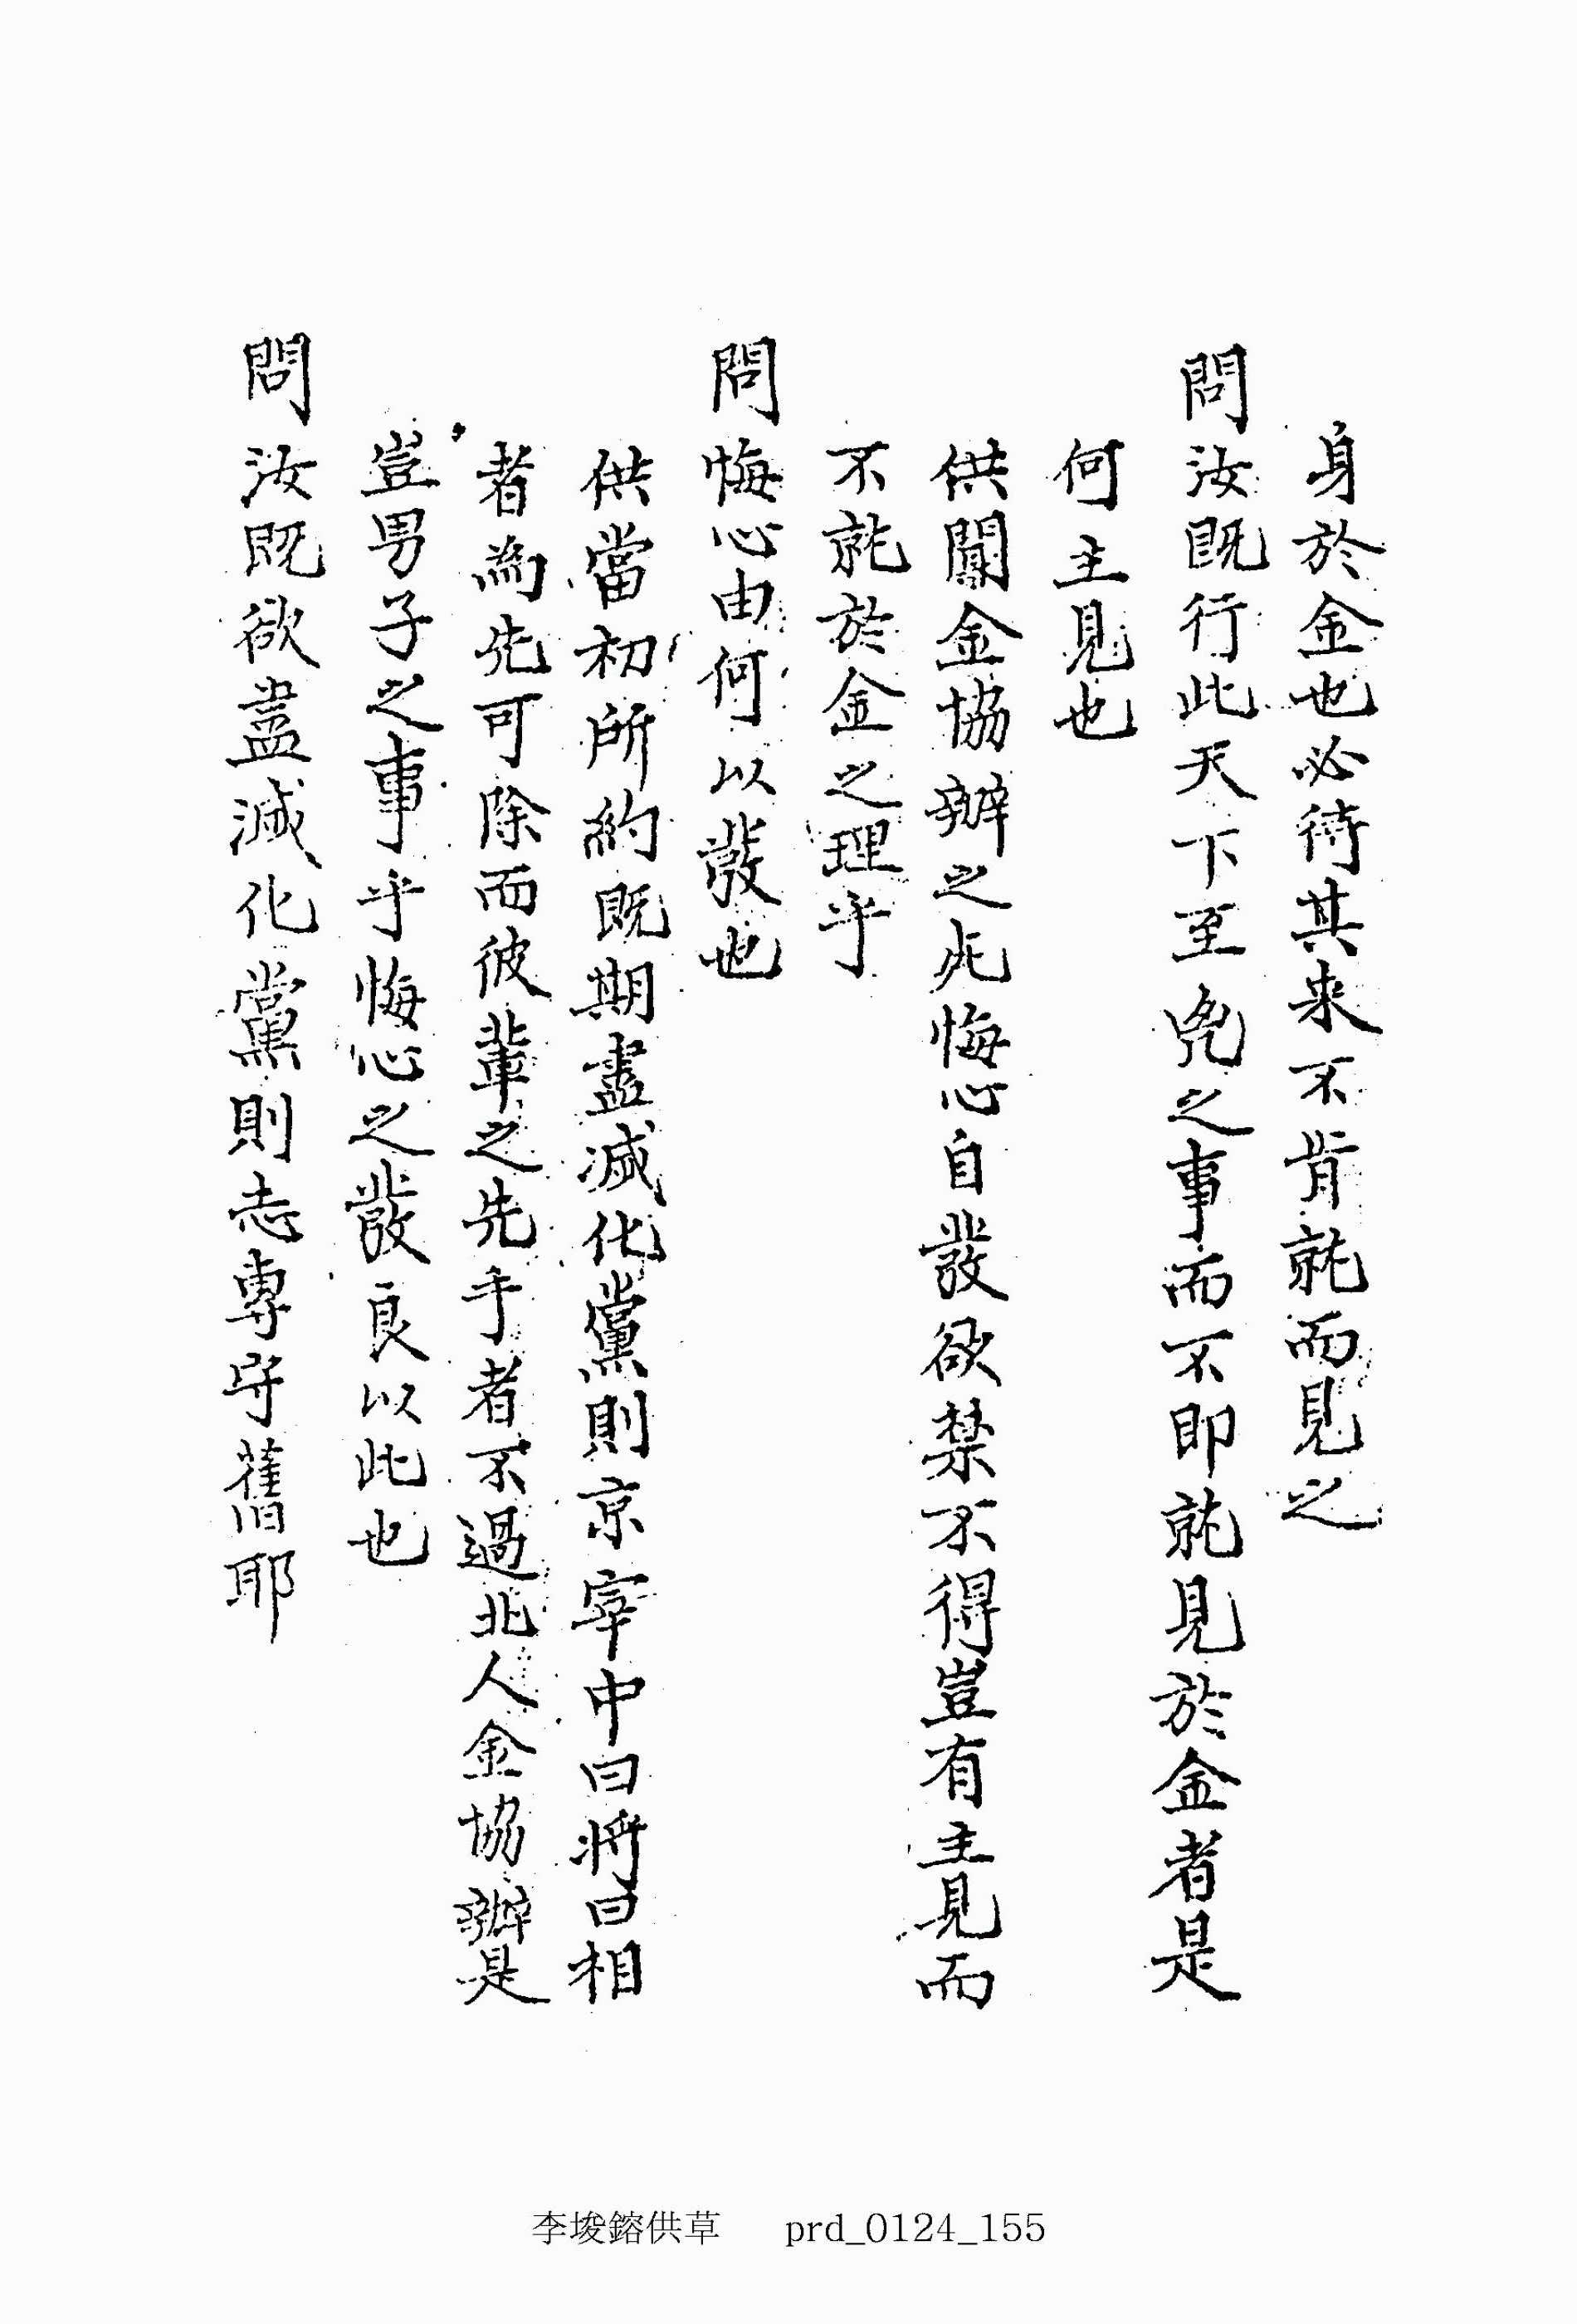 身於金也必待其来不肯就而見之
問汝既行此天下至凶之事而不即就見於金者是
何主見也
供聞金協辦之死悔心自發欲禁不得豈有主見而
不就於金之理乎
問悔心由何以發也
供當初所約既期盡滅化黨則京宰中曰將曰相
者為先可除而彼輩之先手者不過北人金協辦是
豈男子之事乎悔心之發良以此也
問汝既欲盡滅化黨則志專守舊耶
李埈鎔供草 prd_0124_155